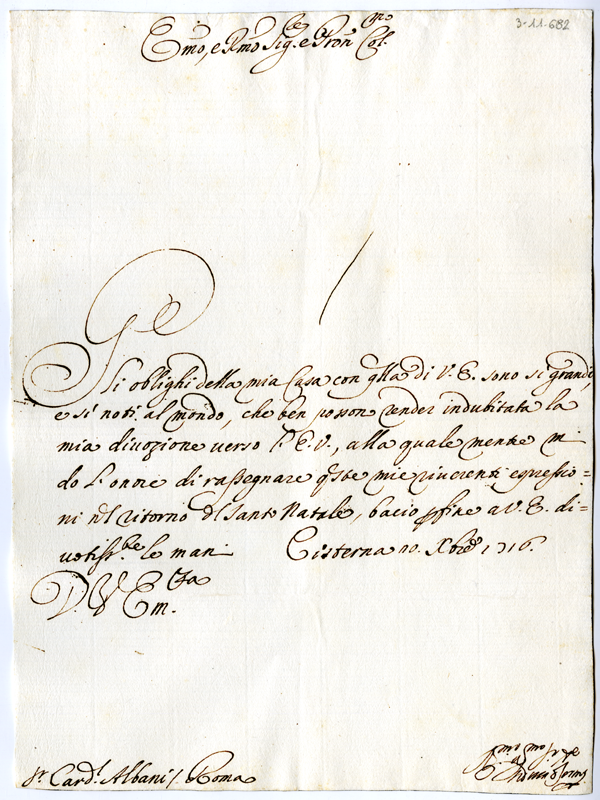 3-11-682
Emo, e Rmo Sig.re e Pron Col.mo
Gli oblighi della mia Casa con qlla di V. E. sono sì grandi,
e sì noti al mondo, che ben posson render indubitata la
mia divozione verso l'E. V., alla quale mentre mi
do l'onore di rassegnare qste mie riverenti espressio=
ni nel ritorno del Santo Natale, bacio per fine a V. E. di=
votissbe le mani Cisterna 10. Xbre 1716.
D. V. Em.za
Sr. Card.l Albani /. Roma